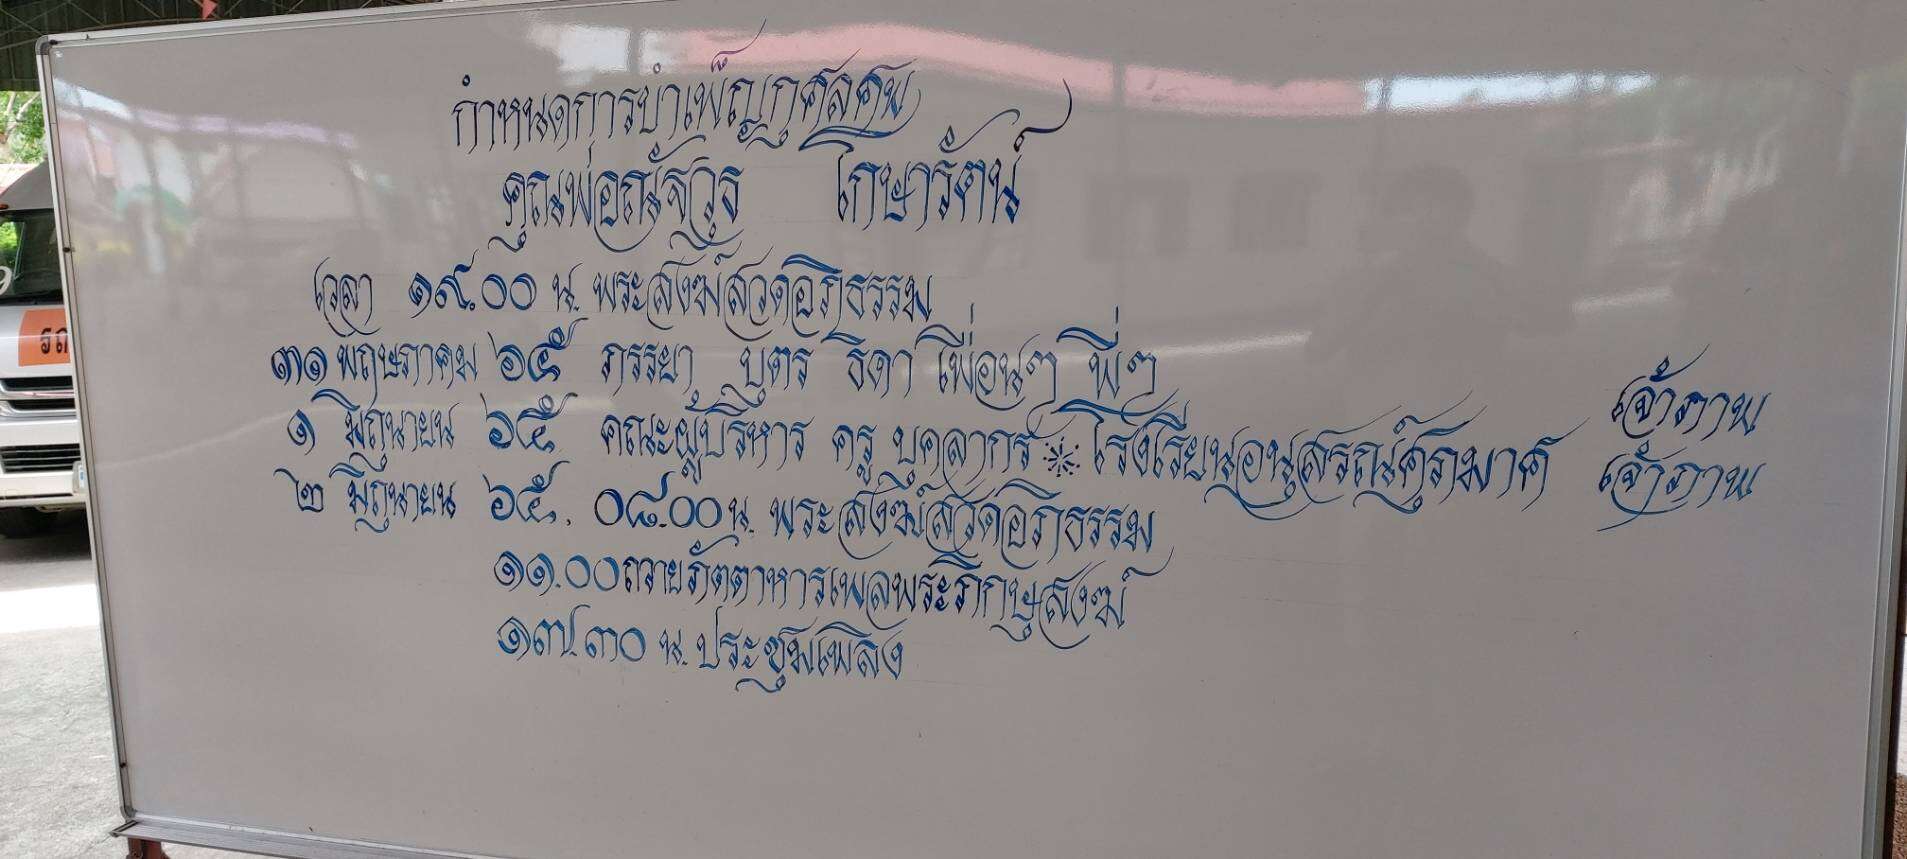 กำหนดการบำเพ็ญกุศลศพ
คุณพ่อณัฐวุธ โกษารัตน์
เวลา ๑๙.๐๐ น. พระสงฆ์สวดอภิธรรม
๓๑ พฤษภาคม ๖๕ ภรรยา บุตร ธิดา เพื่อนๆ พี่ๆ เจ้าภาพ
๑ มิถุนายน ๖๕ คณะผู้บริหาร ครู บุคลากร โรงเรียนอนุสรณ์ศุภมาศ เจ้าภาพ
๒ มิถุนายน ๖๕. ๐๘.๐๐ น. พระสงฆ์สวดอภิธรรม
๑๑.๐๐ ถวายภัตตาหารเพลพระภิกษุสงฆ์
๑๗.๓๐ น. ประชุมเพลิง